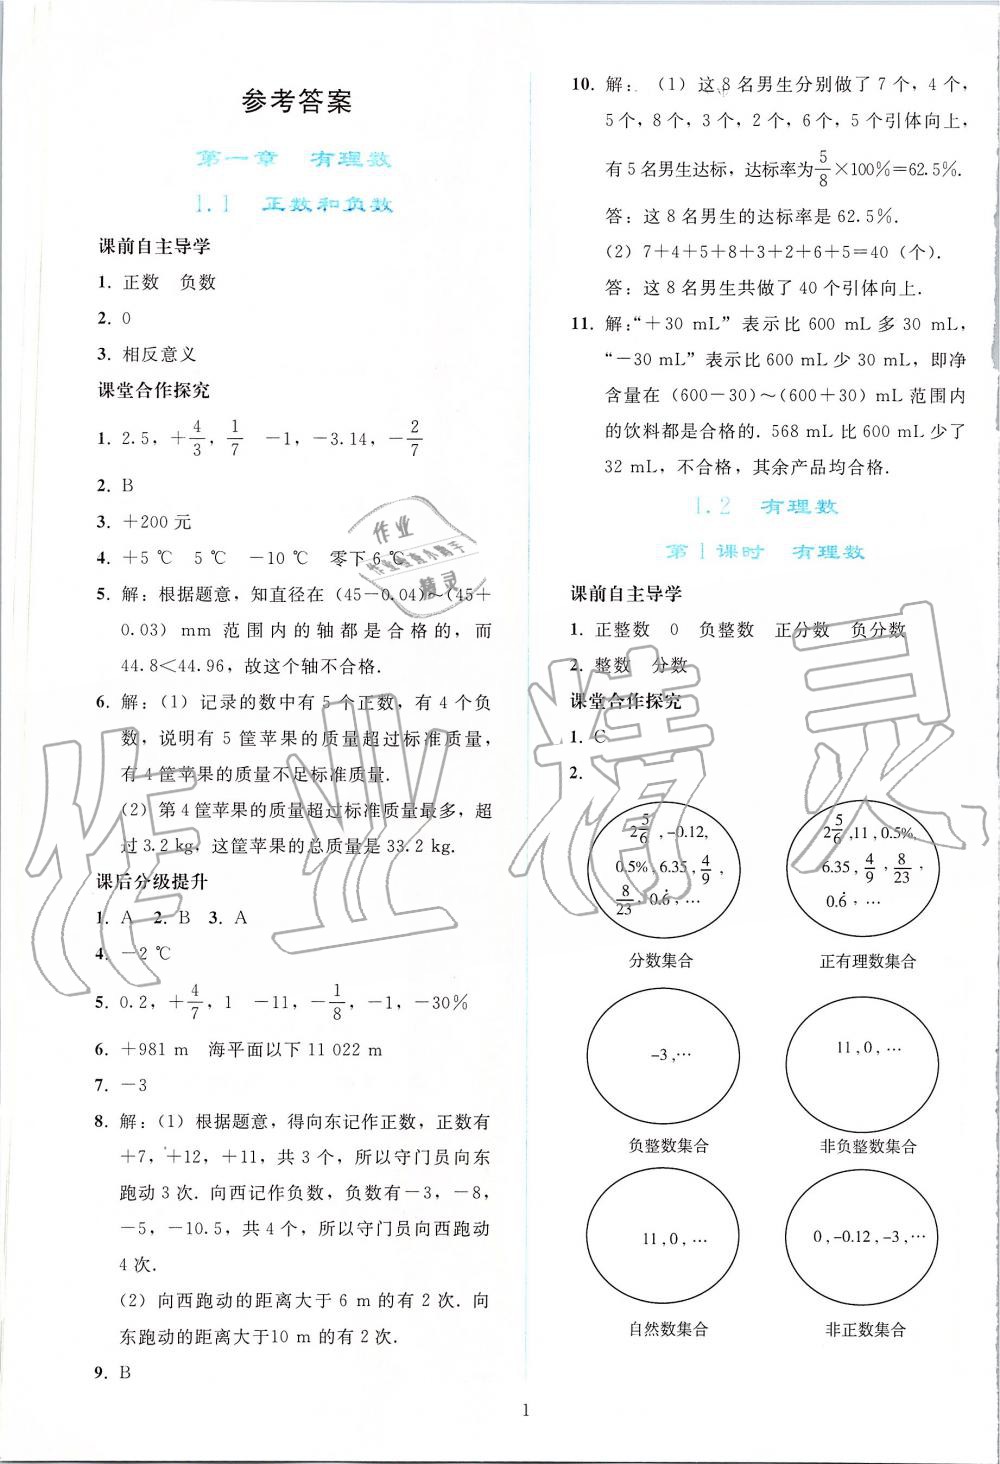 参考答案
第一章 有理数
1.1 正数和负数
课前自主导学
1. 正数 负数
2. 0
3. 相反意义
课堂合作探究
1. 2.5，+4/3，1/7 -1，-3.14，-2/7
2. B
3. +200 元
4. +5 ℃ 5 ℃ -10 ℃ 零下 6 ℃
5. 解：根据题意，知直径在（45-0.04）~（45+
0.03）mm 范围内的轴都是合格的，而
44.8<44.96，故这个轴不合格.
6. 解：（1）记录的数中有 5 个正数，有 4 个负
数，说明有 5 筐苹果的质量超过标准质量，
有 4 筐苹果的质量不足标准质量.
（2）第 4 筐苹果的质量超过标准质量最多，超
过 3.2 kg，这筐苹果的总质量是 33.2 kg.
课后分级提升
1. A 2. B 3. A
4. -2 ℃
5. 0.2，+4/7，1 -11，-1/8，-1，-30%
6. +981 m 海平面以下 11 022 m
7. -3
8. 解：（1）根据题意，得向东记作正数，正数有
+7，+12，+11，共 3 个，所以守门员向东
跑动 3 次. 向西记作负数，负数有-3，-8，
-5，-10.5，共 4 个，所以守门员向西跑动
4 次.
（2）向西跑动的距离大于 6 m 的有 2 次. 向
东跑动的距离大于10 m 的有 2 次.
9. B
10. 解：（1）这 8 名男生分别做了 7 个，4 个，
5 个，8 个，3 个，2 个，6 个，5 个引体向上，
有 5 名男生达标，达标率为5/8×100%=62.5%.
答：这 8 名男生的达标率是 62.5%.
（2）7+4+5+8+3+2+6+5=40（个）.
答：这 8 名男生共做了 40 个引体向上.
11. 解：“+30 mL”表示比 600 mL 多 30 mL，
“-30 mL”表示比 600 mL 少 30 mL，即净
含量在（600-30）~（600+30）mL 范围内
的饮料都是合格的. 568 mL 比 600 mL 少了
32 mL，不合格，其余产品均合格.
1.2 有理数
第 1 课时 有理数
课前自主导学
1. 正整数 0 负整数 正分数 负分数
2. 整数 分数
课堂合作探究
1. C
2.
2 5/6，-0.12,
0.5%，6.35，4/9，
8/23，0.6̇，…
分数集合
2 5/6，11，0.5%,
6.35，4/9，8/23，
0.6̇，…
正有理数集合
-3，…
负整数集合
11，0，…
非负整数集合
11，0，…
自然数集合
0，-0.12，-3，…
非正数集合
1
作业
作业检查小助手
精灵
作业精灵